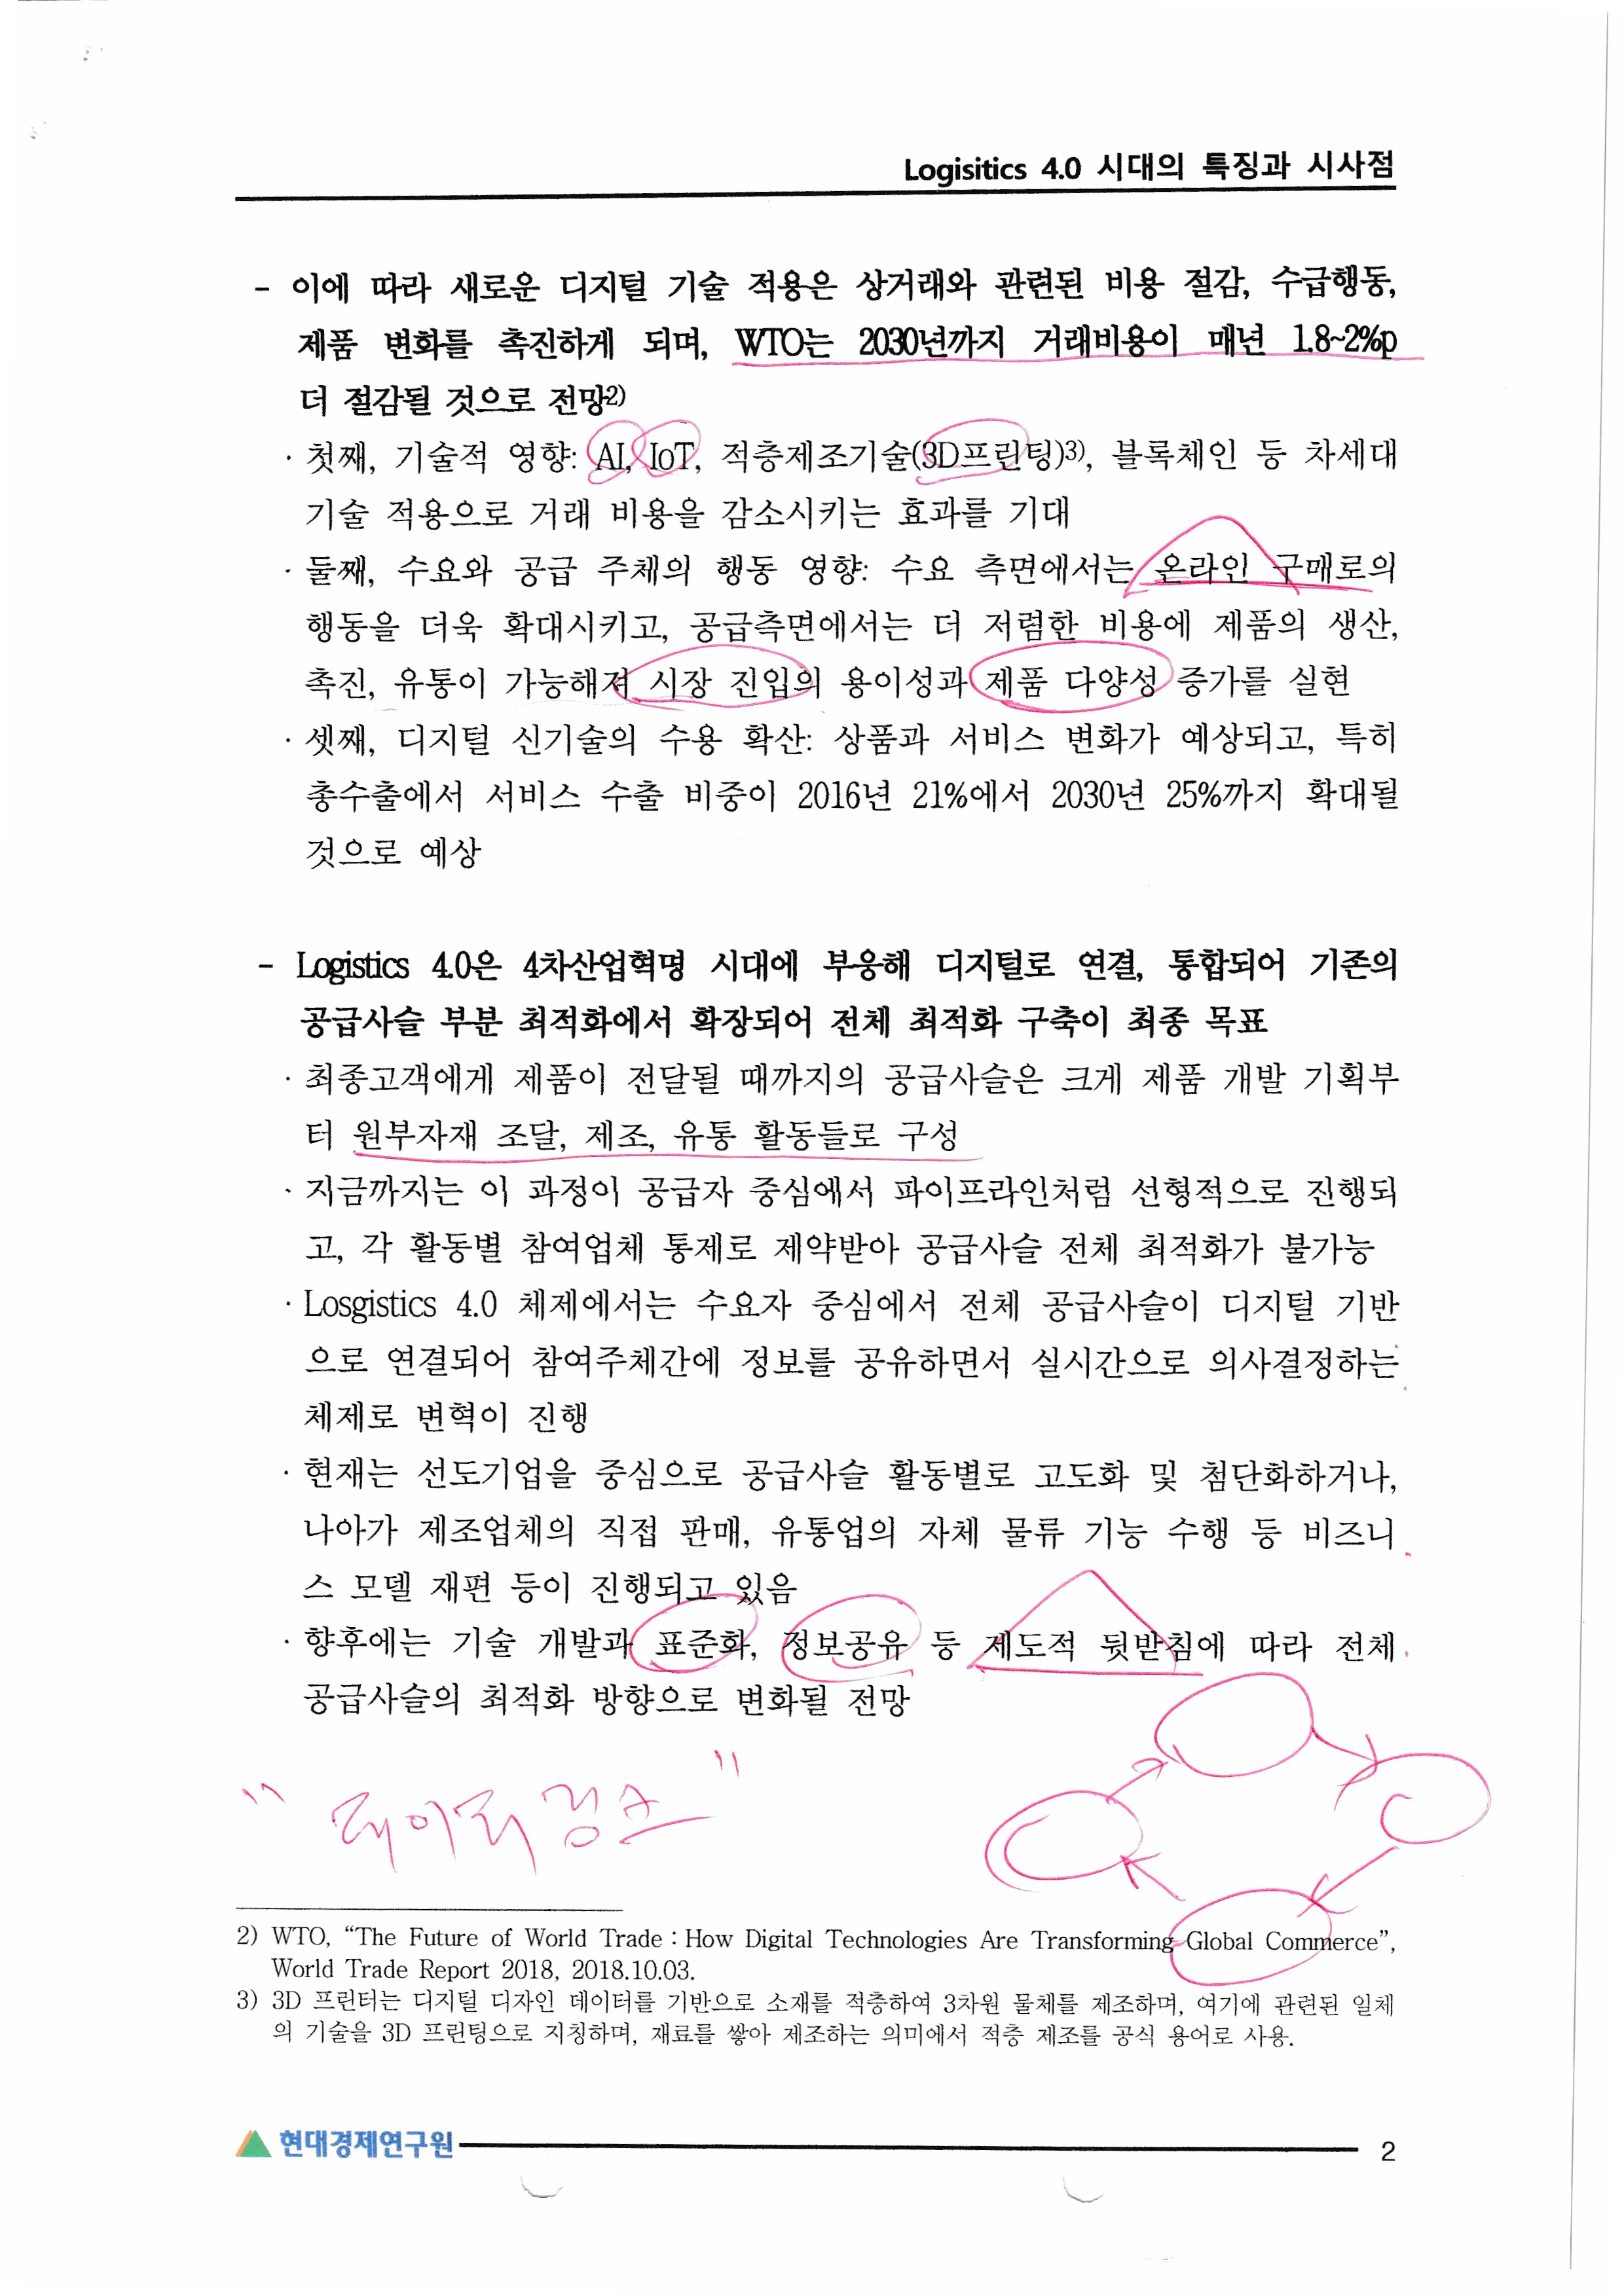 Logisitics 4.0 시대의 특징과 시사점
- 이에 따라 새로운 디지털 기술 적용은 상거래와 관련된 비용 절감, 수급행동,
제품 변화를 촉진하게 되며, WTO는 2030년까지 거래비용이 매년 1.8~2%p
더 절감될 것으로 전망2)
· 첫째, 기술적 영향: AI, IoT, 적층제조기술(3D프린팅)3), 블록체인 등 차세대
기술 적용으로 거래 비용을 감소시키는 효과를 기대
· 둘째, 수요와 공급 주체의 행동 영향: 수요 측면에서는 온라인 구매로의
행동을 더욱 확대시키고, 공급측면에서는 더 저렴한 비용에 제품의 생산,
촉진, 유통이 가능해져 시장 진입의 용이성과 제품 다양성 증가를 실현
· 셋째, 디지털 신기술의 수용 확산: 상품과 서비스 변화가 예상되고, 특히
총수출에서 서비스 수출 비중이 2016년 21%에서 2030년 25%까지 확대될
것으로 예상
- Logistics 4.0은 4차산업혁명 시대에 부응해 디지털로 연결, 통합되어 기존의
공급사슬 부분 최적화에서 확장되어 전체 최적화 구축이 최종 목표
· 최종고객에게 제품이 전달될 때까지의 공급사슬은 크게 제품 개발 기획부
터 원부자재 조달, 제조, 유통 활동들로 구성
· 지금까지는 이 과정이 공급자 중심에서 파이프라인처럼 선형적으로 진행되
고, 각 활동별 참여업체 통제로 제약받아 공급사슬 전체 최적화가 불가능
· Losgistics 4.0 체제에서는 수요자 중심에서 전체 공급사슬이 디지털 기반
으로 연결되어 참여주체간에 정보를 공유하면서 실시간으로 의사결정하는
체제로 변혁이 진행
· 현재는 선도기업을 중심으로 공급사슬 활동별로 고도화 및 첨단화하거나,
나아가 제조업체의 직접 판매, 유통업의 자체 물류 기능 수행 등 비즈니
스 모델 재편 등이 진행되고 있음
· 향후에는 기술 개발과 표준화, 정보공유 등 제도적 뒷받침에 따라 전체
공급사슬의 최적화 방향으로 변화될 전망
2) WTO, “The Future of World Trade : How Digital Technologies Are Transforming Global Commerce”,
World Trade Report 2018, 2018.10.03.
3) 3D 프린터는 디지털 디자인 데이터를 기반으로 소재를 적층하여 3차원 물체를 제조하며, 여기에 관련된 일체
의 기술을 3D 프린팅으로 지칭하며, 재료를 쌓아 제조하는 의미에서 적층 제조를 공식 용어로 사용.
현대경제연구원 2